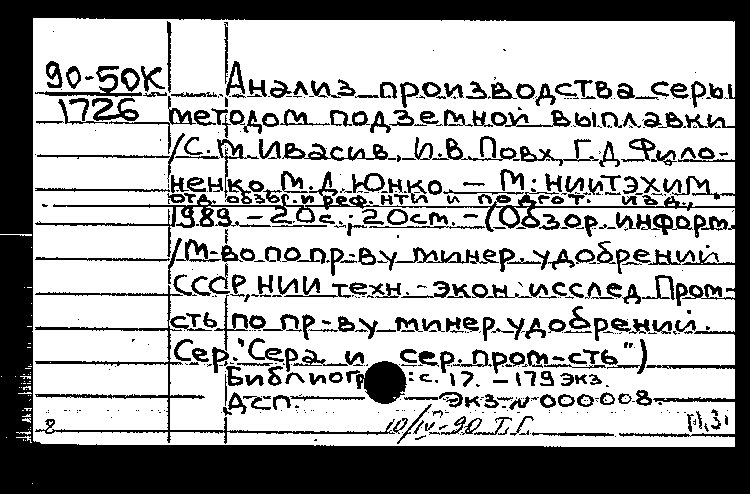 90-50К
1726
Анализ производства серы
методом подземной выплавки
/С.М.Ивасив, И.В.Повх, Г.Д.Фило-
ненко, М.Д.Юнко. — М: НИИТЭХИМ.
отд. обзор. и реф. НТИ и подгот. изд.,
1989. - 20с.; 20см. - (Обзор. информ.
/М-во по пр-ву минер. удобрений
СССР, НИИ техн.-экон. исслед. Пром-
сть по пр-ву минер. удобрений.
Сер. "Сера и сер. пром-сть")
Библиогр : с. 17. — 179 экз.
ДСП. Экз. № 000008
8 10/IV-90 Т.Г.